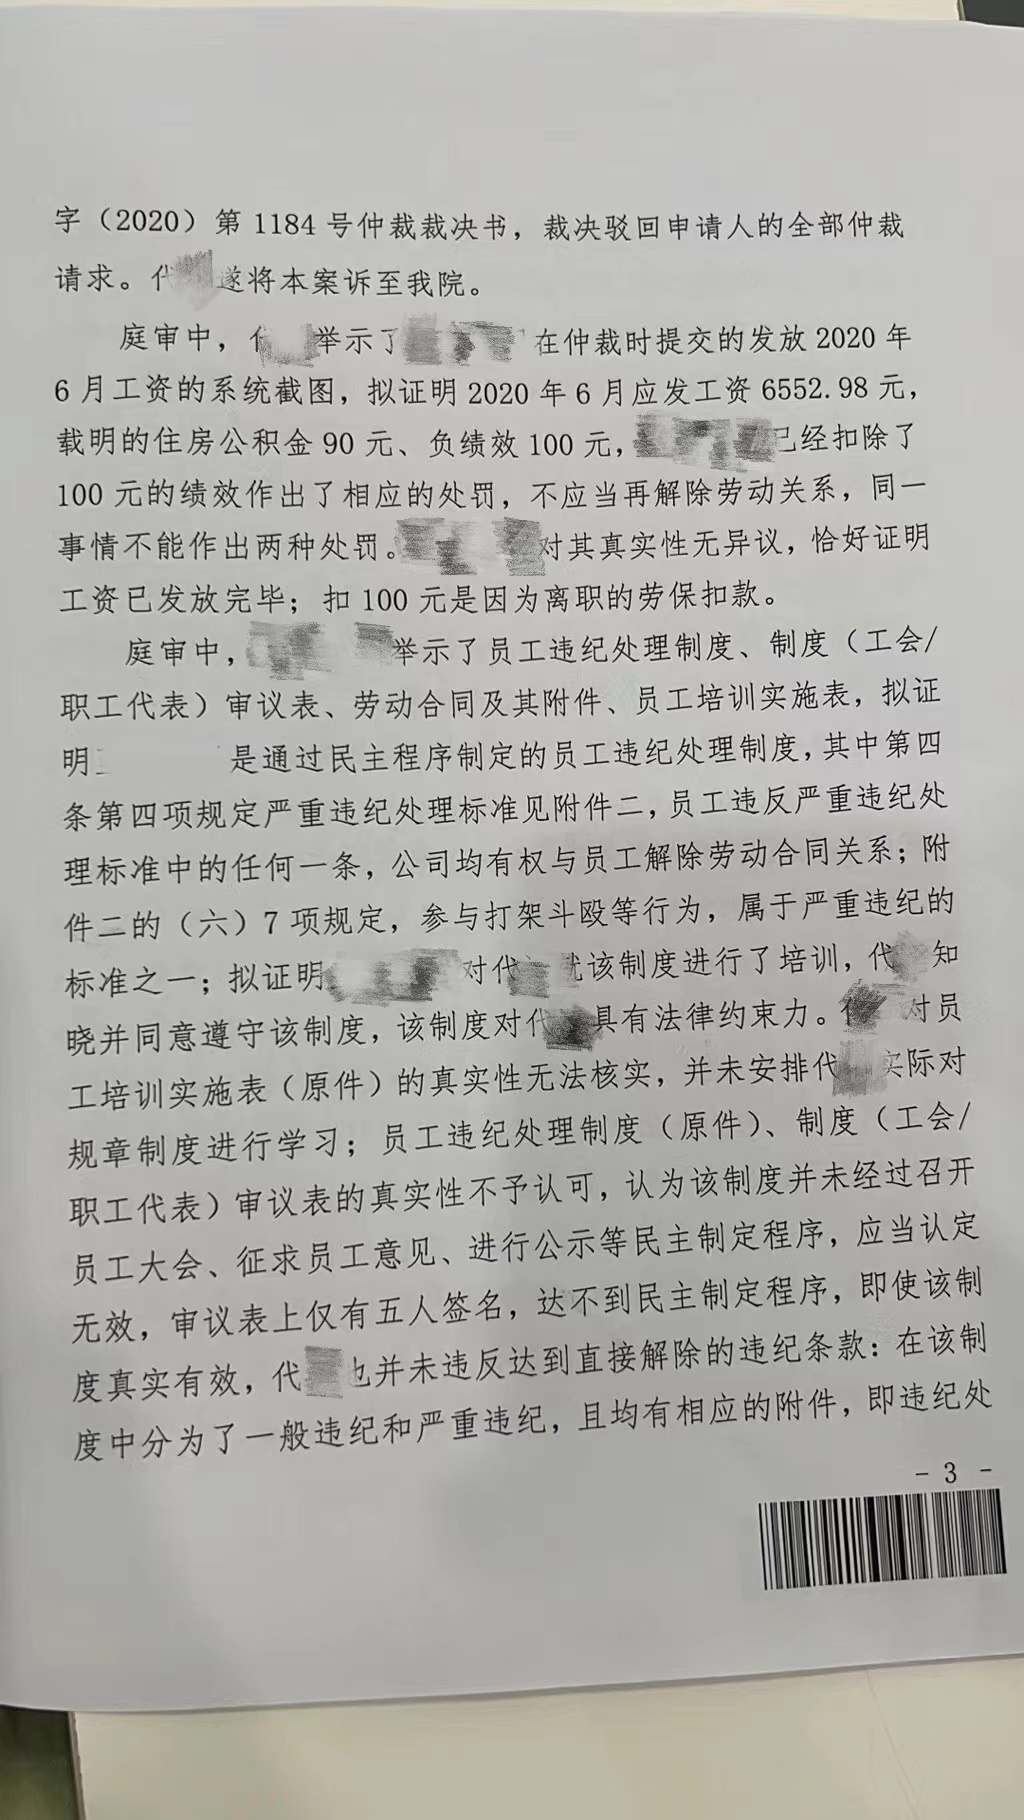 字（2020）第 1184 号仲裁裁决书，裁决驳回申请人的全部仲裁
请求。遂将本案诉至我院。
庭审中，举示了在仲裁时提交的发放 2020 年
6 月工资的系统截图，拟证明 2020 年 6 月应发工资 6552.98 元，
载明的住房公积金 90 元、负绩效 100 元，已经扣除了
100 元的绩效作出了相应的处罚，不应当再解除劳动关系，同一
事情不能作出两种处罚。对其真实性无异议，恰好证明
工资已发放完毕；扣 100 元是因为离职的劳保扣款。
庭审中，举示了员工违纪处理制度、制度（工会/
职工代表）审议表、劳动合同及其附件、员工培训实施表，拟证
明是通过民主程序制定的员工违纪处理制度，其中第四
条第四项规定严重违纪处理标准见附件二，员工违反严重违纪处
理标准中的任何一条，公司均有权与员工解除劳动合同关系；附
件二的（六）7 项规定，参与打架斗殴等行为，属于严重违纪的
标准之一；拟证明对代就该制度进行了培训，代知
晓并同意遵守该制度，该制度对代具有法律约束力。对员
工培训实施表（原件）的真实性无法核实，并未安排代实际对
规章制度进行学习；员工违纪处理制度（原件）、制度（工会/
职工代表）审议表的真实性不予认可，认为该制度并未经过召开
员工大会、征求员工意见、进行公示等民主制定程序，应当认定
无效，审议表上仅有五人签名，达不到民主制定程序，即使该制
度真实有效，代也并未违反达到直接解除的违纪条款：在该制
度中分为了一般违纪和严重违纪，且均有相应的附件，即违纪处
- 3 -